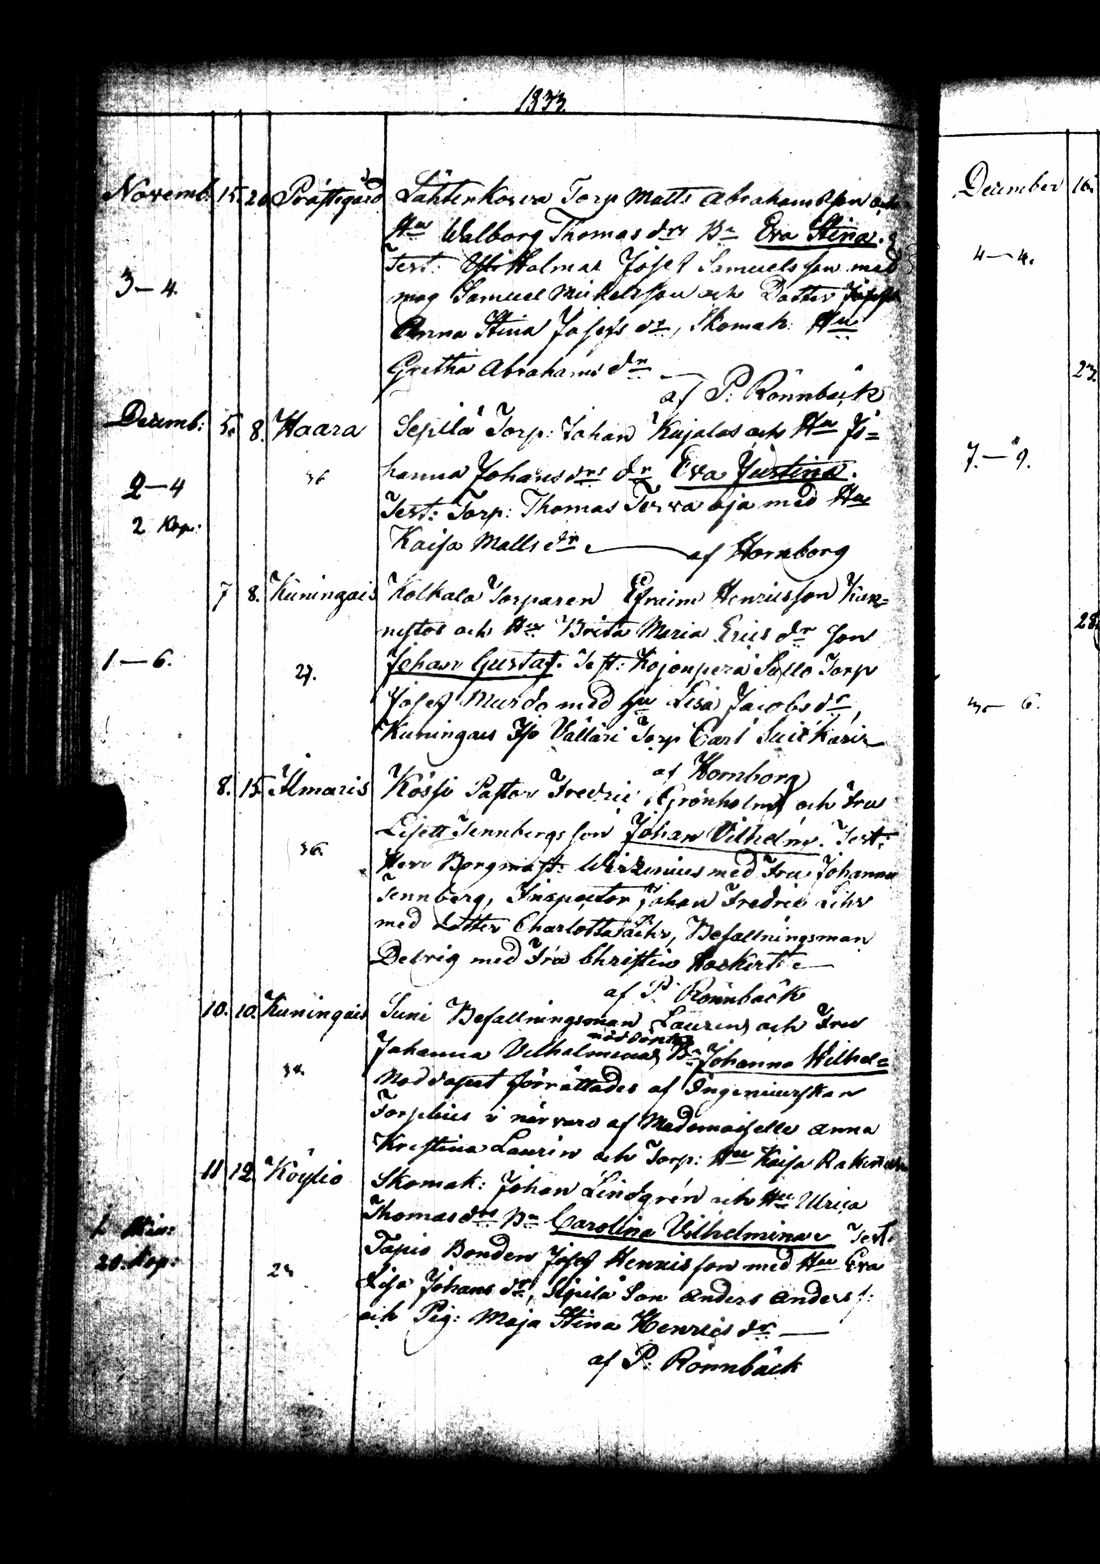 1833.
Novemb. 15. 20 Prästgård Lähtenkorva Torp Matts Abrahamsson och
Hu Walborg Thomas drs Br Eva Stina.
Test: Holmar Josef Samuelsson med
3–4. mag Samuel Mickelsson och Dotter
Anna Stina Josefs dr, Skomak: Hu
Gretha Abrahams dr
af P: Rönnbäck
Decemb: 5. 8. Haara Sepilä Torp: Johan Kajalas och Hu Jo=
36 hanna Johans drs dr Eva Justina.
2–4
Test: Torp: Thomas Tervaoja med Hu
2 Kop:
Kaisa Matts dr af Hornborg
7 8. Kuningais Kolkala Torparen Efraim Henricsson Kun=
nistos och Hu Brita Maria Erics dr Son
1–6. 27. Johan Gustaf. Test: Kojonperä Torp
Josef Murdo med Hu Lisa Jacobs dr,
Kuningais Iso Vallari Torp Carl
af Hornborg
8. 15. Ilmaris Kössi Pastor Fredric Grönholm och Fru
Lisett Tennbergs son Johan Vilhelm. Test:
36. Herr Borgmäst: Wirzenius med Fru Johanna
Tennberg, Inspector Johan Fredric Lihr
med Dotter Charlotta Lihr, Befallningsman
Detrig med Fru Christin
af P: Rönnbäck
10. 10. Kuningais Suni Befallningsman Laurens och Fru
Johanna Vilhelminas nöddöpta Br Johanna Wilhel=
38. Noddopet förrättades af Ingenieurskan
Forselius i närvaro af Mademoiselle Anna
Kristina Laurén och Torp: Hu Kaisa
11 12 Köyliö Skomak: Johan Lindgrén och Hu Ulrica
Thomas drs Br Carolina Vilhelmina Test:
20. Kop: Tapio Bonden Josef Henricsson med Hu Eva
Lisa Johans dr, Sepilä Son Anders Anders s:
och Pig: Maja Stina Henrics dr
af P: Rönnbäck
December 16.
4–4.
23.
7.–9.
28.
6.